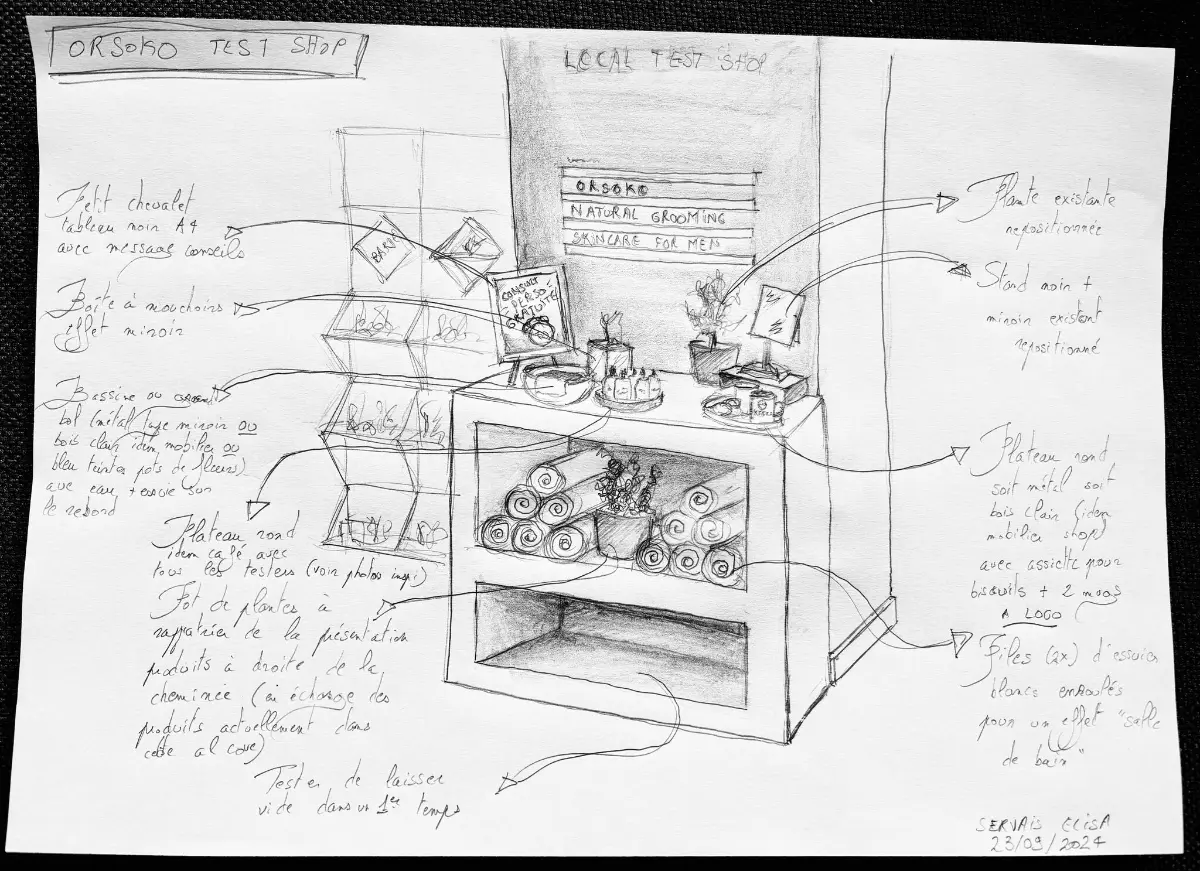 ORSOKO TEST SHOP
LOCAL TEST SHOP
ORSOKO
NATURAL GROOMING
SKINCARE FOR MEN
BARBE
CONSULT
PERSO
GRATUITE
Petit chevalet
tableau noir A4
avec message conseils
Boîte à mouchoirs
effet miroir
Bassine ou
bol (métal type miroir OU
bois clair idem mobilier OU
bleu teinter pots de fleurs)
avec eau + essuie sur
le rebord
Plateau rond
idem café avec
tous les testers (voir photos inspi)
Pot de plantes à
rapatrier de la présentation
produits à droite de la
cheminée (en échange des
produits actuellement dans
cette al cove)
Tester de laisser
vide dans un 1er temps
Plante existante
repositionnée
Stand noir +
miroir existant
repositionné
Plateau rond
soit métal soit
bois clair (idem
mobilier shop)
avec assiette pour
biscuits + 2 mugs
A LOGO
Piles (2x) d'essuies
blancs enroulés
pour un effet "salle
de bain"
SERVAIS ELISA
23/09/2024